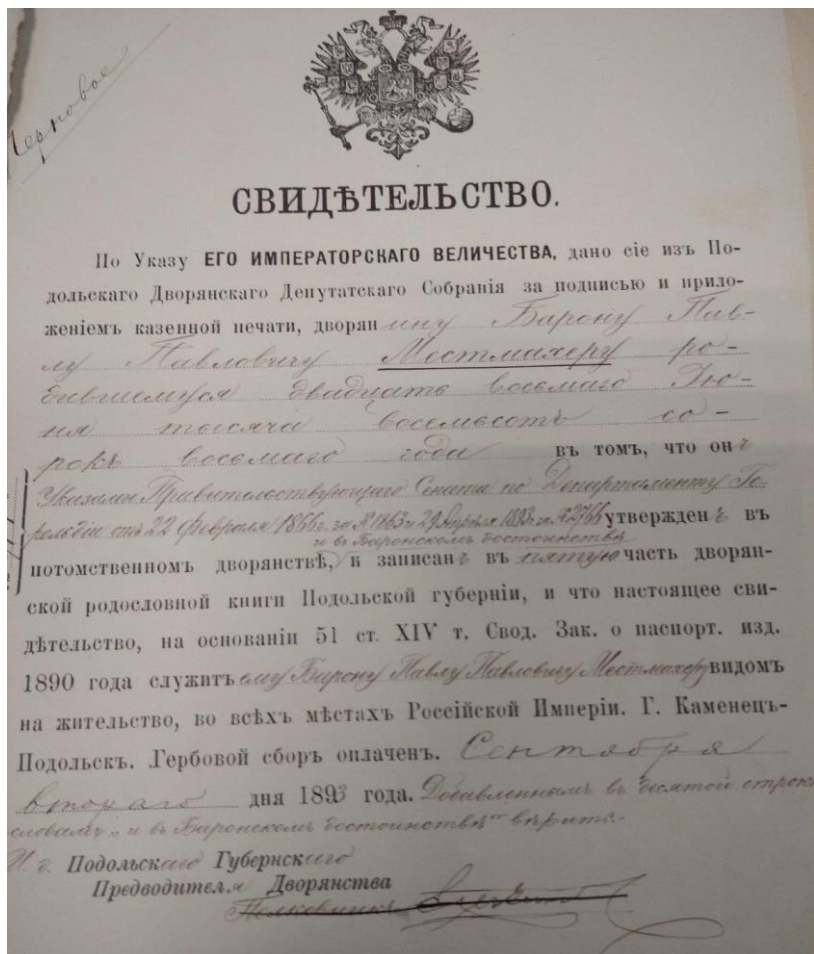 Черновое
СВИДѢТЕЛЬСТВО.
По Указу ЕГО ИМПЕРАТОРСКАГО ВЕЛИЧЕСТВА, дано сіе изъ По-
дольскаго Дворянскаго Депутатскаго Собранія за подписью и прило-
женіемъ казенной печати, дворянину Барону Пав-
лу Павловичу Местмахеру ро-
дившемуся двадцать восьмаго Ію-
ня тысяча восемьсотъ со-
рокъ восьмаго года въ томъ, что онъ
Указами Правительствующаго Сената по Департаменту Ге-
рольдіи отъ 22 Февраля 1866 г. за № 1863 и 29 Апрѣля 1893 г. за № 2766 утвержденъ въ
и въ Баронскомъ достоинствѣ
потомственномъ дворянствѣ, и записанъ въ пятую часть дворян-
ской родословной книги Подольской губерніи, и что настоящее сви-
дѣтельство, на основаніи 51 ст. XIV т. Свод. Зак. о паспорт. изд.
1890 года служитъ ему Барону Павлу Павловичу Местмахеру видомъ
на жительство, во всѣхъ мѣстахъ Россійской Имперіи. Г. Каменецъ-
Подольскъ. Гербовой сборъ оплаченъ. Сентября
втораго дня 1893 года. Добавленнымъ въ десятой строкѣ
словамъ „и въ Баронскомъ достоинствѣ" вѣрить.-
И. д. Подольскаго Губернскаго
Предводителя Дворянства
Полковникъ